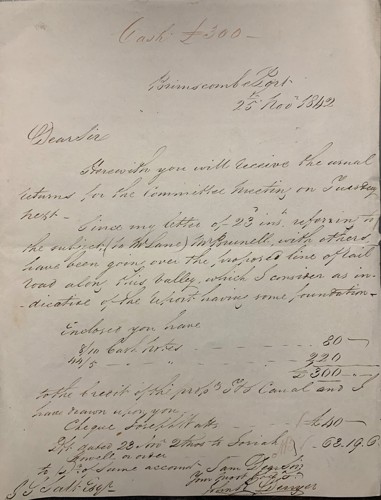 Cash £300 -
Brimscombe Port
25th Novr 1842
Dear Sir
Herewith you will receive the usual
returns for the Committee Meeting on Tuesday
next -
Since my letter of 23d inst referring to
the subject (to Mr Lane) Mr Brunell, with others
have been going over the proposed line of rail
road along this Valley, which I consider as in-
dicative of the report having some foundation -
Enclosed you have
Cash Notes 80 -
220
£300 -
to the credit of the propr T & S Canal and I
have drawn upon you,
Cheque Joseph Watts £40 -
dated 22 inst
62.19.6
of same account. I am Dear Sir
Your
S S Salt Esqr